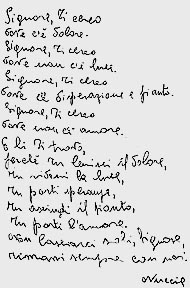 Signore, Ti cerco
dove c'è dolore.
Signore, Ti cerco
dove non c'è luce.
Signore, Ti cerco
dove c'è disperazione e pianto.
Signore, Ti cerco
dove non c'è amore.
E lì Ti trovo,
perché Tu lenisci il dolore,
Tu ridoni la luce,
Tu porti speranza,
Tu asciughi il pianto,
Tu porti l'amore.
Non lasciarci soli, Signore,
rimani sempre con noi.